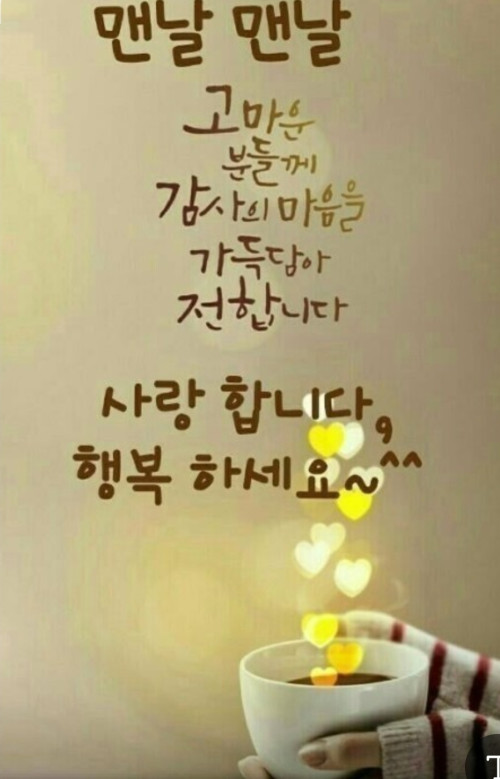 맨날 맨날
고마운
분들께
감사의 마음을
가득담아
전합니다
사랑 합니다,
행복 하세요~^^